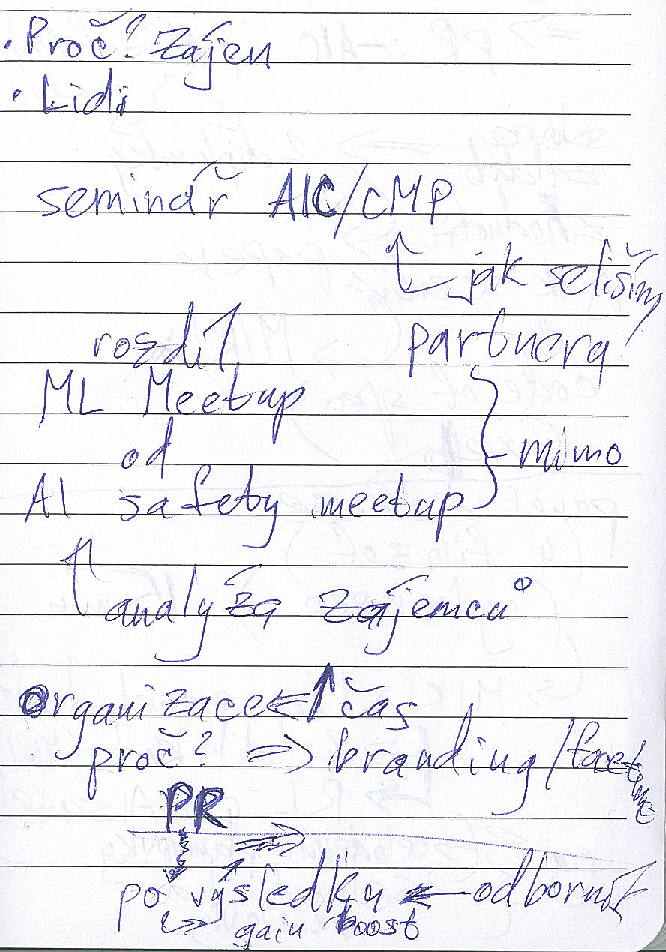 · Proč? Zájem
· Lidi
seminář AIC/CMP
jak se liším
partnera?
rozdíl
ML Meetup
od
AI safety meetup
mimo
analýza zájemců
organizace ⇐ ↑ čas
proč? ⇒ branding/
PR
⇒
po výsledku ← odborník
↪ gain boost